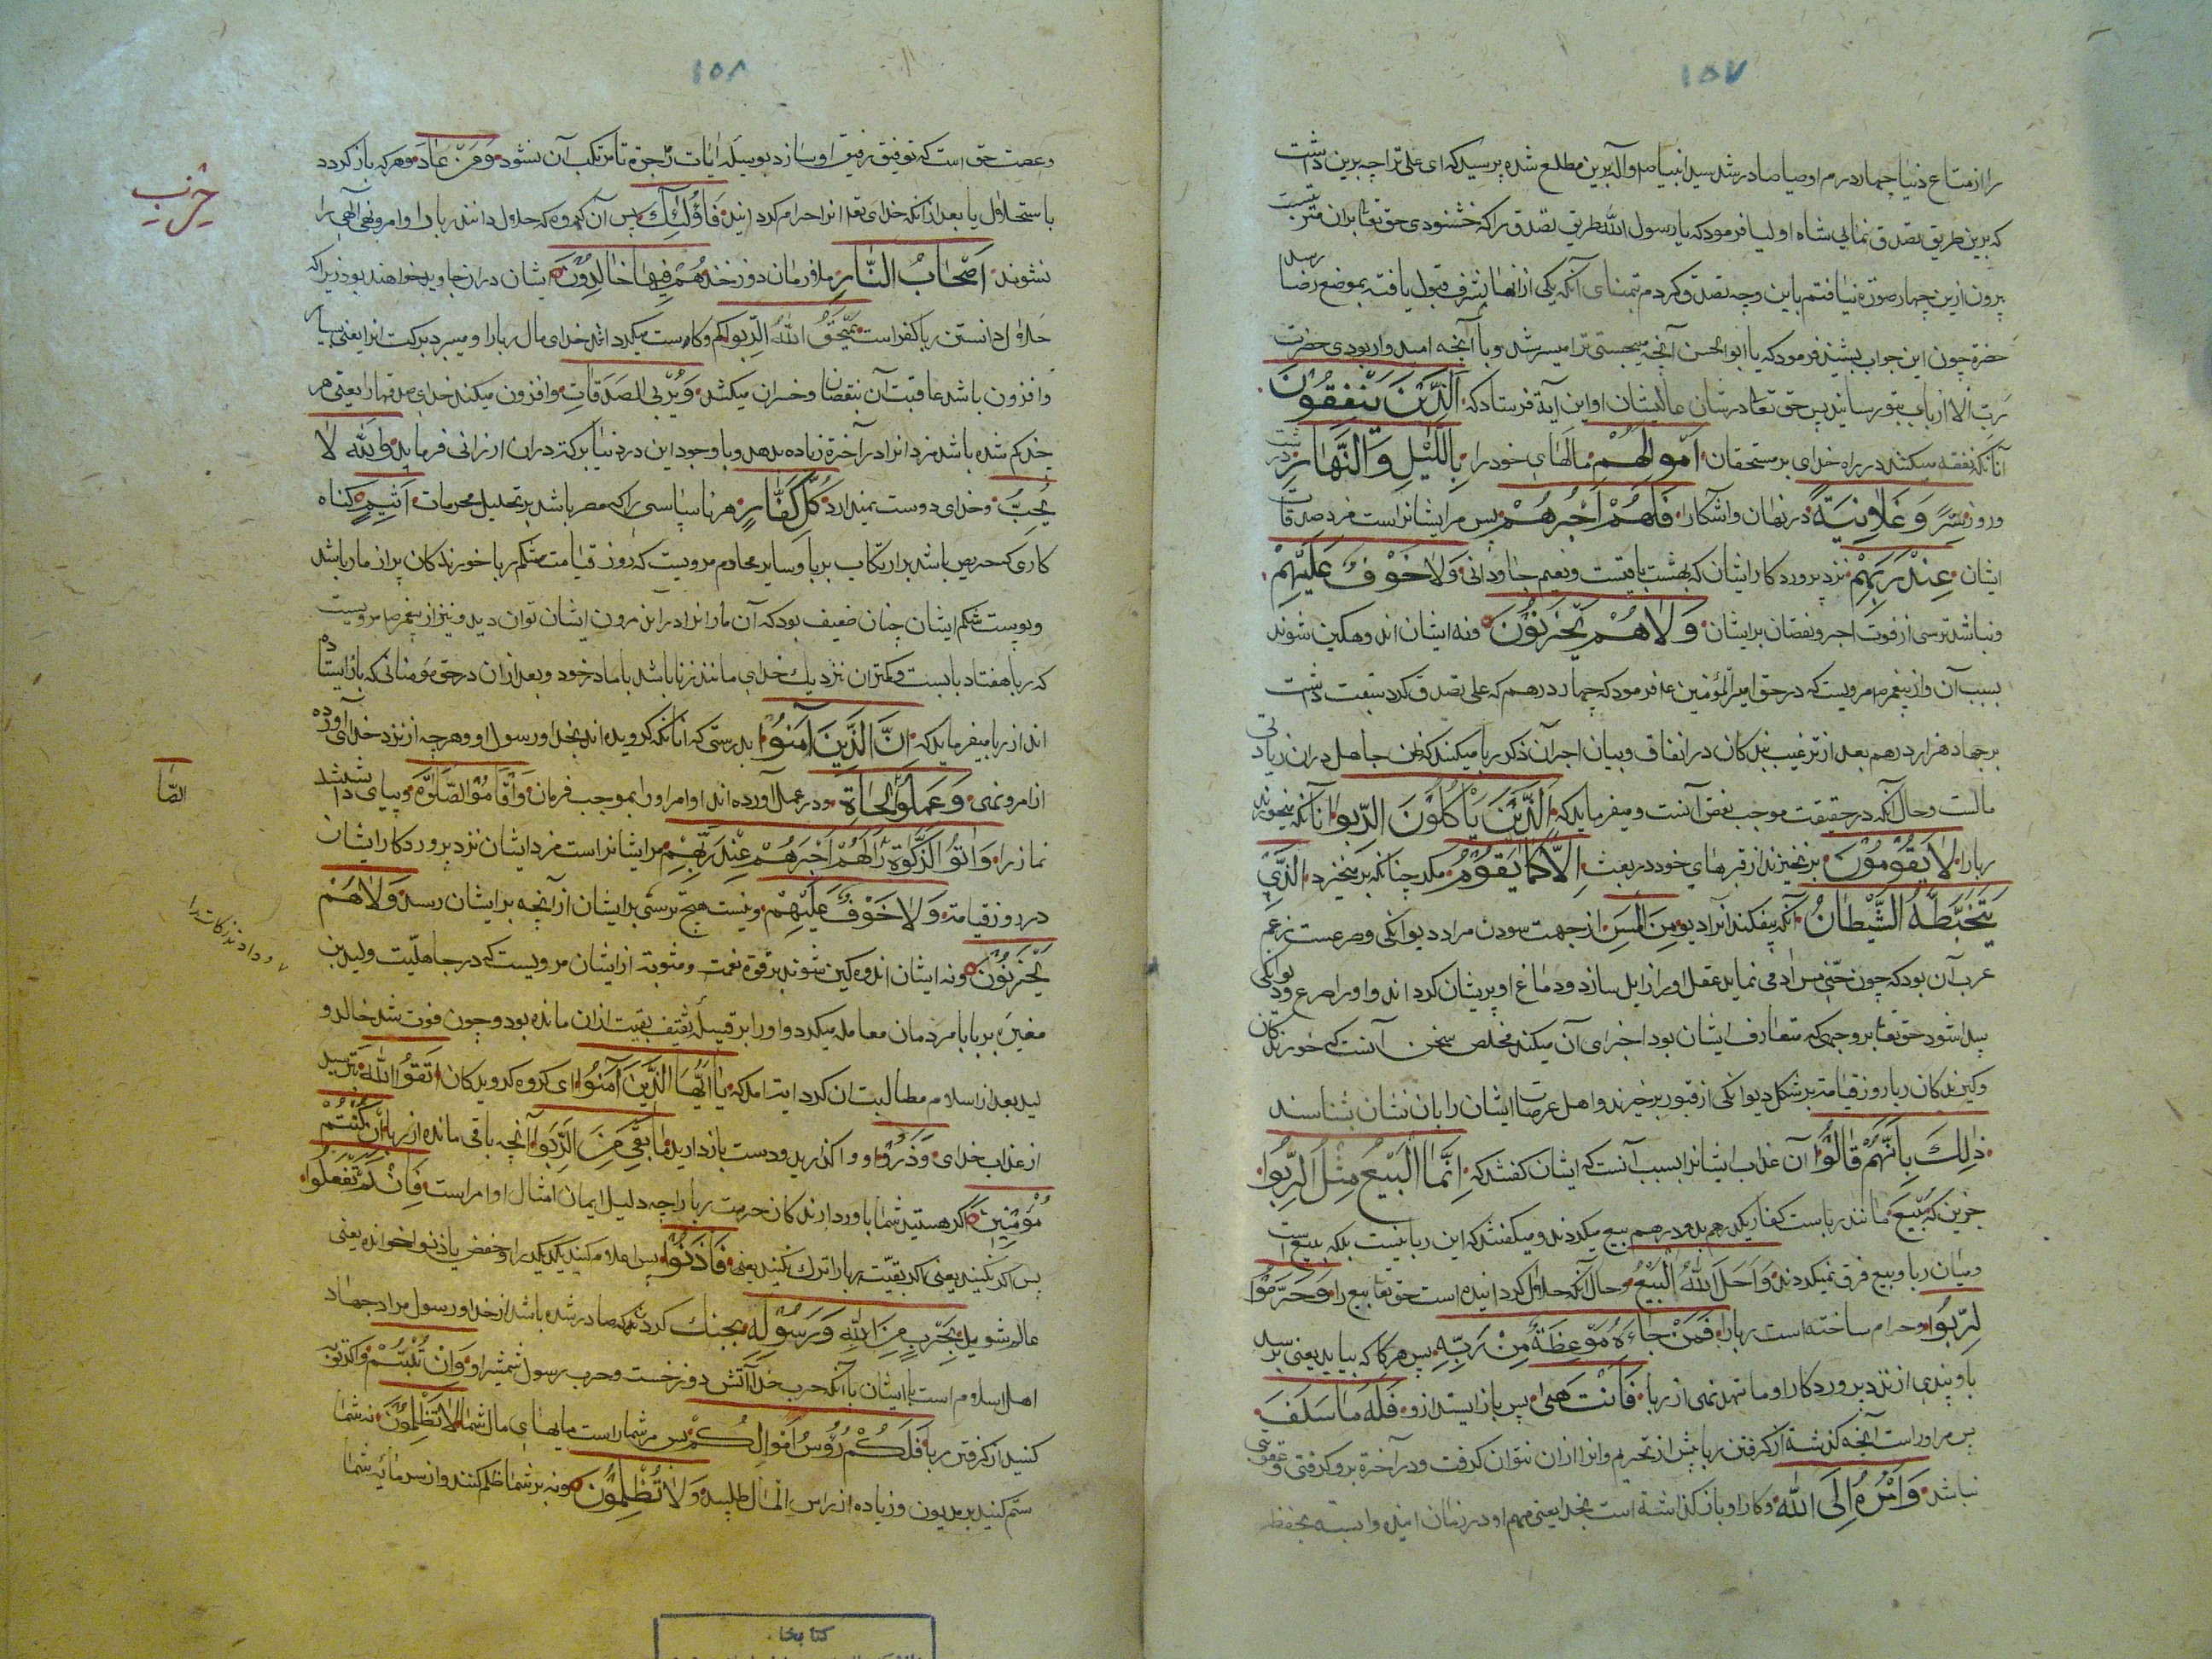 ۱۵۷
را از متاع دنیا چهار درم اوصیا صادر شد سید انبیا صلوا آله برین مطلع شده پرسید که ای علی ترا چه برین داشت
که برین طریق تصدق نمایی شاه اولیا فرمود که یا رسول الله طریق تصدق را که خشنودی حق تعا بران مترتبست
برون ازین چهار صورة نیافتم باین وجه تصدق کردم بتمنای آنکه یکی ازانها بشرف قبول یافته بموضع رضا رسد
حضرة چون این جواب بشنید فرمود که یا ابوالحسن آنچه میجستی ترا میسر شد و با آنچه امیدوار بودی حضرت
رب الارباب بتو رسانید پس حق تعا در شان عالیشان او این آیة فرستاد که الَّذِینَ یُنْفِقُونَ
آنانکه نفقه میکنند در راه خدای بر مستحقان اَمْوالَهُمْ مالهای خود را بِاللَّیْلِ وَالنَّهارِ در شب
و روز سِرًّا وَعَلانِیَةً در نهان و آشکارا فَلَهُمْ اَجْرُهُمْ پس مر ایشانراست مزد صدقات
ایشان عِنْدَ رَبِّهِمْ نزد پروردکار ایشان که بهشت باقیست و نعیم جاودانی وَلا خَوْفٌ عَلَیْهِمْ
و نباشد ترسی از فوت اجر و نقصان بر ایشان وَلا هُمْ یَحْزَنُونَ و نه ایشان اندوهکین شوند
بسبب آن و از پیغمبر ص مرویست که در حق امیرالمؤمنین ع فرمود که چهار درهم که علی تصدق کرد سبقت داشت
بر چهار هزار درهم بعد از ترغیب بندکان در انفاق و بیان اجر آن ذکر ربا میکند که ظن جاهل در ان زیادتی
مالست و حال آنکه در حقیقت موجب نقص آنست و میفرماید که الَّذِینَ یَأْکُلُونَ الرِّبوا آنانکه میخورند
ربا را لا یَقُومُونَ بر نخیزند از قبرهای خود در بعث اِلّا کَما یَقُومُ مکر چنانکه برمیخیزد الَّذِی
یَتَخَبَّطُهُ الشَّیْطانُ آنکه بیفکند او را دیو مِنَ الْمَسِّ از جهت سودن مراد دیوانکی و صرعست زعم
عرب آن بود که چون جنّی مس ادمی نماید عقل او را زایل سازد و دماغ او پریشان کرداند و او را صرع و دیوانکی
پیدا شود حق تعا بر وجهی که متعارف ایشان بود اجرای آن میکند مخلص سخن آنست که خورندکان
و کیرندکان ربا روز قیامة بر شکل دیوانکی از قبور برخیزند و اهل عرصات ایشان را بان نشان بشناسند
ذلِکَ بِاَنَّهُمْ قالُوا آن عذاب ایشانرا بسبب آنست که ایشان کفتند که اِنَّمَا الْبَیْعُ مِثْلُ الرِّبوا
جزین که بیع مانند رباست کفار یکدرهم بدو درهم بیع میکردند و میکفتند که این ربا نیست بلکه بیع است
و میان ربا و بیع فرق نمیکردند وَاَحَلَّ اللهُ الْبَیْعَ و حال آنکه حلال کردانیده است حق تعا بیع را وَحَرَّمَ
الرِّبوا و حرام ساخته است ربا را فَمَنْ جاءَهُ مَوْعِظَةٌ مِنْ رَبِّهِ پس هر کرا که بیاید یعنی برسد
باو پندی از نزد پروردکار او مانند نهی از ربا فَانْتَهی پس باز ایستد ازو فَلَهُ ما سَلَفَ
پس مر اوراست آنچه کذشته از کرفتن ربا پیش از تحریم و انرا از ان نتوان کرفت و در آخرة برو کرفتی و عقوبتی
نباشد وَاَمْرُهُ اِلَی اللهِ و کار او باز کذاشته است بخدا یعنی مهم او در زمان اینده وابسته بحفظ
۱۵۸
و عصمت حق است که توفیق رفیق او سازد بوسیله ایات زاجره تا مرتکب آن نشود وَمَنْ عادَ و هر که باز کردد
باستحلال ربا بعد از آنکه خدای تعا انرا حرام کردانید فَاُولئِکَ پس آن کروه که حلال دانند ربا را و امر و نهی الهی را
نشنوند اَصْحابُ النّارِ ملازمان دوزخند هُمْ فِیها خالِدُونَ ایشان دران جاوید خواهند بود زیرا که
حلال دانستن ربا کفر است یَمْحَقُ اللهُ الرِّبوا کم و کاست میکرداند خدای مال ربا را و میبرد برکت انرا یعنی بسیار
و افزون باشد عاقبت آن بنقصان و خسران میکشد وَیُرْبِی الصَّدَقاتِ و افزون میکند خدای صدقها را یعنی هر
چند کم شده باشد مزد انرا در آخرة زیاده بدهد و با وجود این در دنیا برکة دران ارزانی فرماید وَاللهُ لا
یُحِبُّ و خدای دوست نمیدارد کُلَّ کَفّارٍ هر ناسپاسی را که مصر باشد بر تحلیل محرمات اَثِیمٍ کناه
کاری که حریص باشد بر ارتکاب بربا و سایر محارم مرویست که روز قیامت شکم ربا خورندکان پر از مار باشد
و پوست شکم ایشان چنان ضعیف بود که آن مارانرا در اندرون ایشان توان دید و نیز از پیغمبر ص مرویست
که ربا هفتاد بابست و کمترین نزدیک خدای مانند زنا باشد با مادر خود و بعد ازان در حق مؤمنانی که باز ایستاده
اند از ربا میفرماید که اِنَّ الَّذِینَ آمَنُوا بدرستی که آنانکه کرویده اند بخدا و رسول او و هرچه از نزد خدا آورده
از امر و نهی وَعَمِلُوا الصّالِحاتِ و در عمل آورده اند اوامر او را بموجب فرمان وَاَقامُوا الصَّلوةَ و بپای داشتند
نماز را وَاتَوُا الزَّکوةَ لَهُمْ اَجْرُهُمْ عِنْدَ رَبِّهِمْ مر ایشانراست مزد ایشان نزد پروردکار ایشان
در روز قیامة وَلا خَوْفٌ عَلَیْهِمْ و نیست هیچ ترسی بر ایشان از آنچه بر ایشان رسد وَلا هُمْ
یَحْزَنُونَ و نه ایشان اندوهکین شوند بر فوت نعمت و مثوبة از ایشان مرویست که در جاهلیّت ولید بن
مغیرَه بربا با مردمان معامله میکرد و او را بر قبیلهٔ ثقیف بقیت ازان مانده بود و چون فوت شد خالد و
لید بعد از اسلام مطالبت ان کرد ایة امد که یا اَیُّهَا الَّذِینَ آمَنُوا ای کروه کرویدکان اتَّقُوا اللهَ بترسید
از عذاب خدای وَذَرُوا و واکذارید و دست بازدارید ما بَقِیَ مِنَ الرِّبوا آنچه باقی مانده از ربا اِنْ کُنْتُمْ
مُؤْمِنِینَ اکر هستید شما باوردارندکان حرمت ربا را چه دلیل ایمان امتثال اوامر است فَاِنْ لَمْ تَفْعَلُوا
پس اکر نکنید یعنی اکر بقیّت ربا را ترک نکنید یعنی فَأْذَنُوا پس اعلام کنید یکدیکر را و حفص یاذنوا خوانده یعنی
عالم شوید بِحَرْبٍ مِنَ اللهِ وَرَسُولِهِ بجنک کردنی که صادر شده باشد از خدا و رسول مراد جهاد
اهل اسلام است با ایشان یا آنکه حرب خدا آتش دوزخست و حرب رسول شمشیر او وَاِنْ تُبْتُمْ و اکر توبه
کنید از کرفتن ربا فَلَکُمْ رُؤُسُ اَمْوالِکُمْ پس مر شماراست مایهای مال شما لا تَظْلِمُونَ نه شما
ستم کنید بر مدیون و زیاده از راس المال طلبید وَلا تُظْلَمُونَ و نه بر شما ظلم کنند و از سرمایه شما
حزب
الصّا
و دادند زکات را
کتابخا